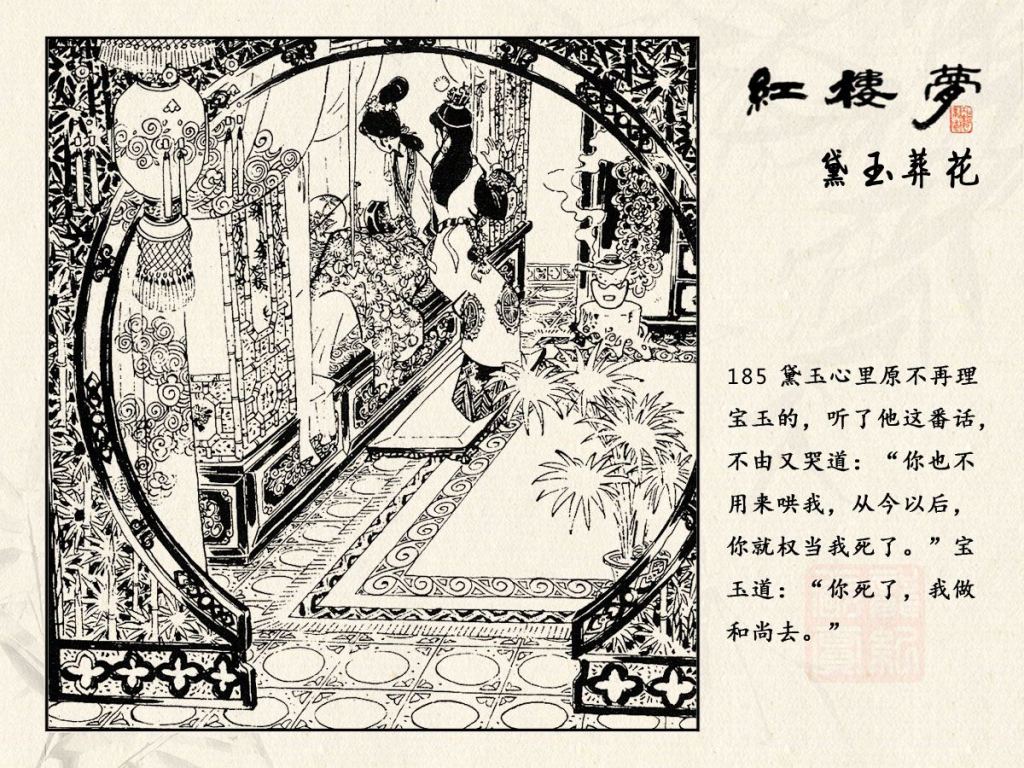 紅樓夢
黛玉葬花
185 黛玉心里原不再理
宝玉的，听了他这番话，
不由又哭道：“你也不
用来哄我，从今以后，
你就权当我死了。”宝
玉道：“你死了，我做
和尚去。”